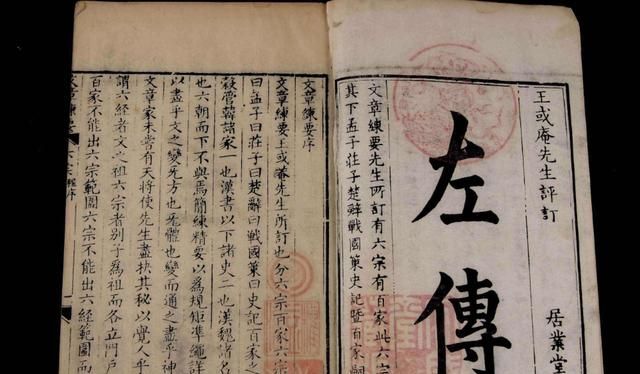 王或庵先生評訂
左傳
文章練要先生所訂有六宗有百家此六宗
其下孟子莊子楚辭戰國策史記暨百家嗣
居業堂
文章練要序
文章練要王或菴先生所訂也分六宗百家六宗
曰孟子曰莊子曰楚辭曰戰國策曰史記百家之
穀管韓諸家一也漢書以下諸史二也漢魏諸名
也六朝而下不與焉簡練精要以為規矩準繩詳
以盡乎文之變死方也死體也變而通之盡乎神
文章家未嘗有天將使先生盡抉其秘以覺人乎
謂六經者文之祖六宗者別子為祖而各立門戶
百家不能出六宗範圍六宗不能出六經範圍而
文章練要 六宗 序